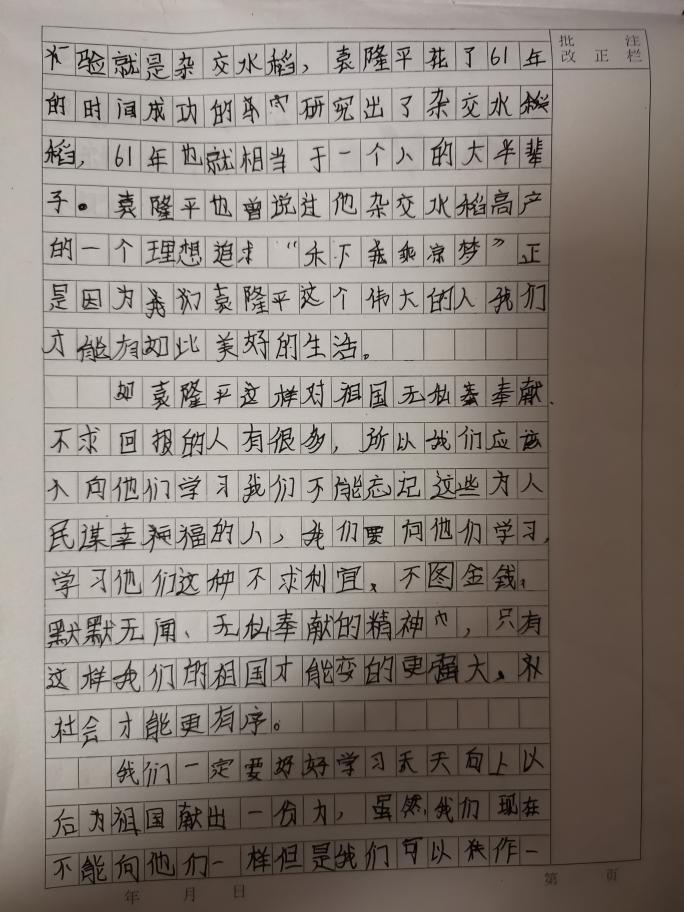 批 注
改 正 栏
验就是杂交水稻，袁隆平花了61年
的时间成功的研究出了杂交水
稻，61年也就相当于一个人的大半辈
子。袁隆平也曾说过他杂交水稻高产
的一个理想追求“禾下乘凉梦”正
是因为我们袁隆平这个伟大的人我们
才能有如此美好的生活。
如袁隆平这样对祖国无私奉献、
不求回报的人有很多，所以我们应该
向他们学习我们不能忘记这些为人
民谋幸福的人，我们要向他们学习，
学习他们这种不求利宜、不图金钱、
默默无闻、无私奉献的精神，只有
这样我们的祖国才能变的更强大。
社会才能更有序。
我们一定要好好学习天天向上以
后为祖国献出一份力，虽然，我们现在
不能向他们一样但是我们可以作一
年 月 日 第 页